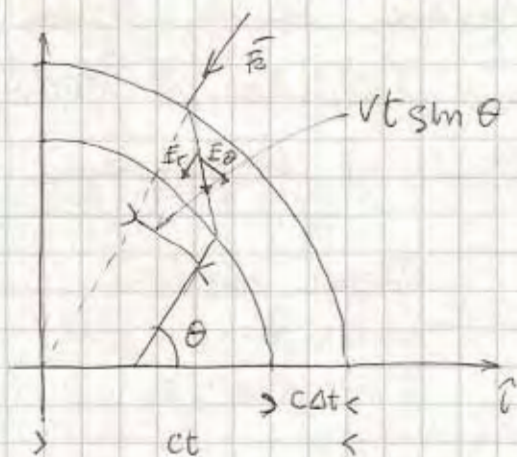 Vt sin θ
E_r E_θ
θ
cΔt
ct